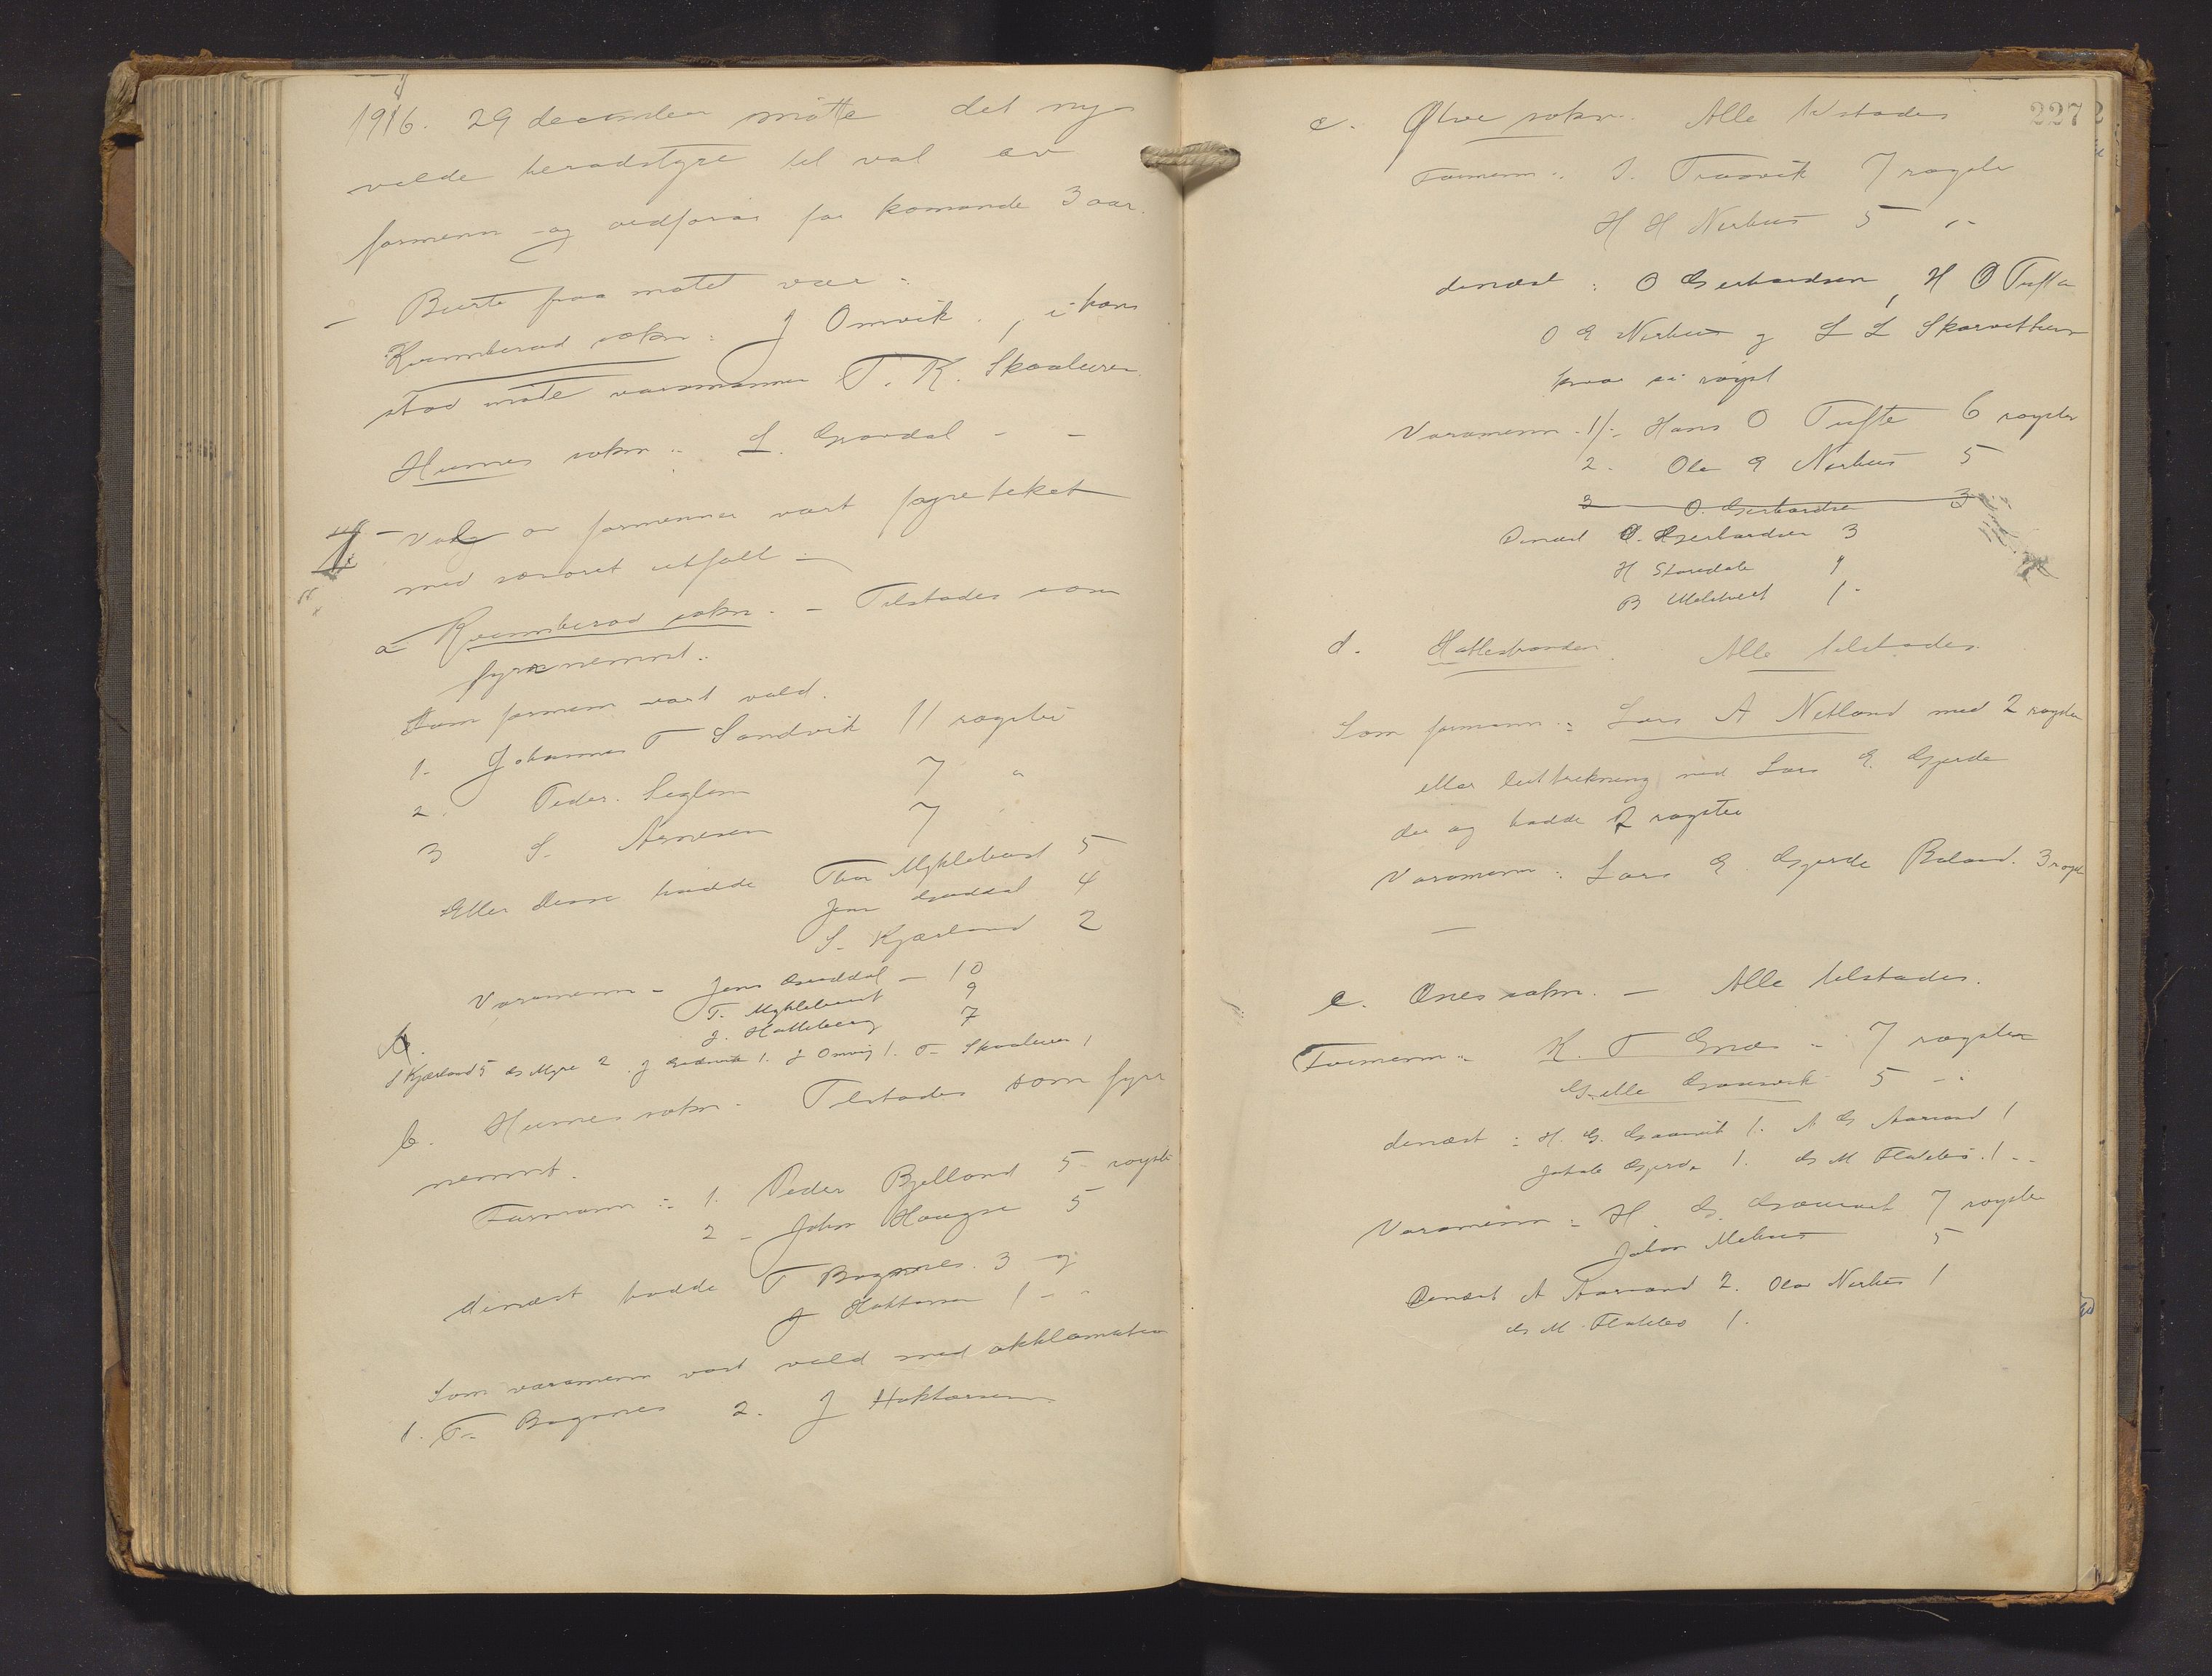 1916. 29 december møtte det ny
valde heradstyre til val av
formenn og ordførar for komande 3 aar.
– Burte fraa møtet var:
Kvinnherad sokn: J Omvik, i hans
stad møtte varamannen T. K. Skaaluren
Husnes sokn: L. Opsdal - -
– Valg av formenner vart fyreteket
med soneret utfall
a Kvinnherad sokn. – Tilstades som
fyrr nemnt.
Som formenn vart vald.
1. Johannes T Sandvik 11 røyster
2. Peder Seglem 7 "
3 S. Arnesen 7
Etter desse hadde Thor Myklebust 5
Jens Guddal 4
S. Kjærland 2
Varamenn - Jens Guddal – 10
T. Myklebust 9
J. Hatteberg 7
S Kjærland 5 G Myre 2. J Sandvik 1. J Omvig 1. T. Skaaluren 1
b. Husnes sokn. Tilstades som fyrr
nemnt.
Formann: 1. Peder Bjelland 5 røyster
2 - John Haugse 5
dinæst hadde T Bognnes 3 og
J Håktorson 1 - -
Som varamenn vart vald med akklamation
1. T. Bognnes 2. J Haktorsen
227
c. Ølve sokn. Alle tilstades
Formenn: J. Trovik 7 røyster
H H Nerhus 5 "
dinæst: O Gerhardsen, H O Tufte
O E Nerhus og L L Skorvethun
kvar ei røyst
Varamenn: 1/. Hans O Tufte 6 røyster
2. Ola E Nerhus 5
3 O. Gerhardsen 3
Dinæst O. Gjerhardsen 3
H Storedale 1
B Melstveit 1
d. Hatlestranden. Alle tilstades.
Som formann: Lars A Netland med 2 røyster
etter luttrekning med Lars E. Gjerde
der og hadde 2 røyster
Varamenn: Lars E Gjerde Røland. 3 røyst
–
e. Ænes sokn. – Alle tilstades.
Formenn: K. T Ænes - 7 røyster
Gjelle Gravvik 5 - "
dinæst: H. G. Gaarvik 1. A G Aarsand 1
Jakob Gjerde 1. G M Flatebø. 1 - -
Varamenn: H. G. Gaarvik 7 røyster
Johan Mehus 5
Dinæst A Aarsand 2. Olav Nerhus 1
G M Flatebø 1.